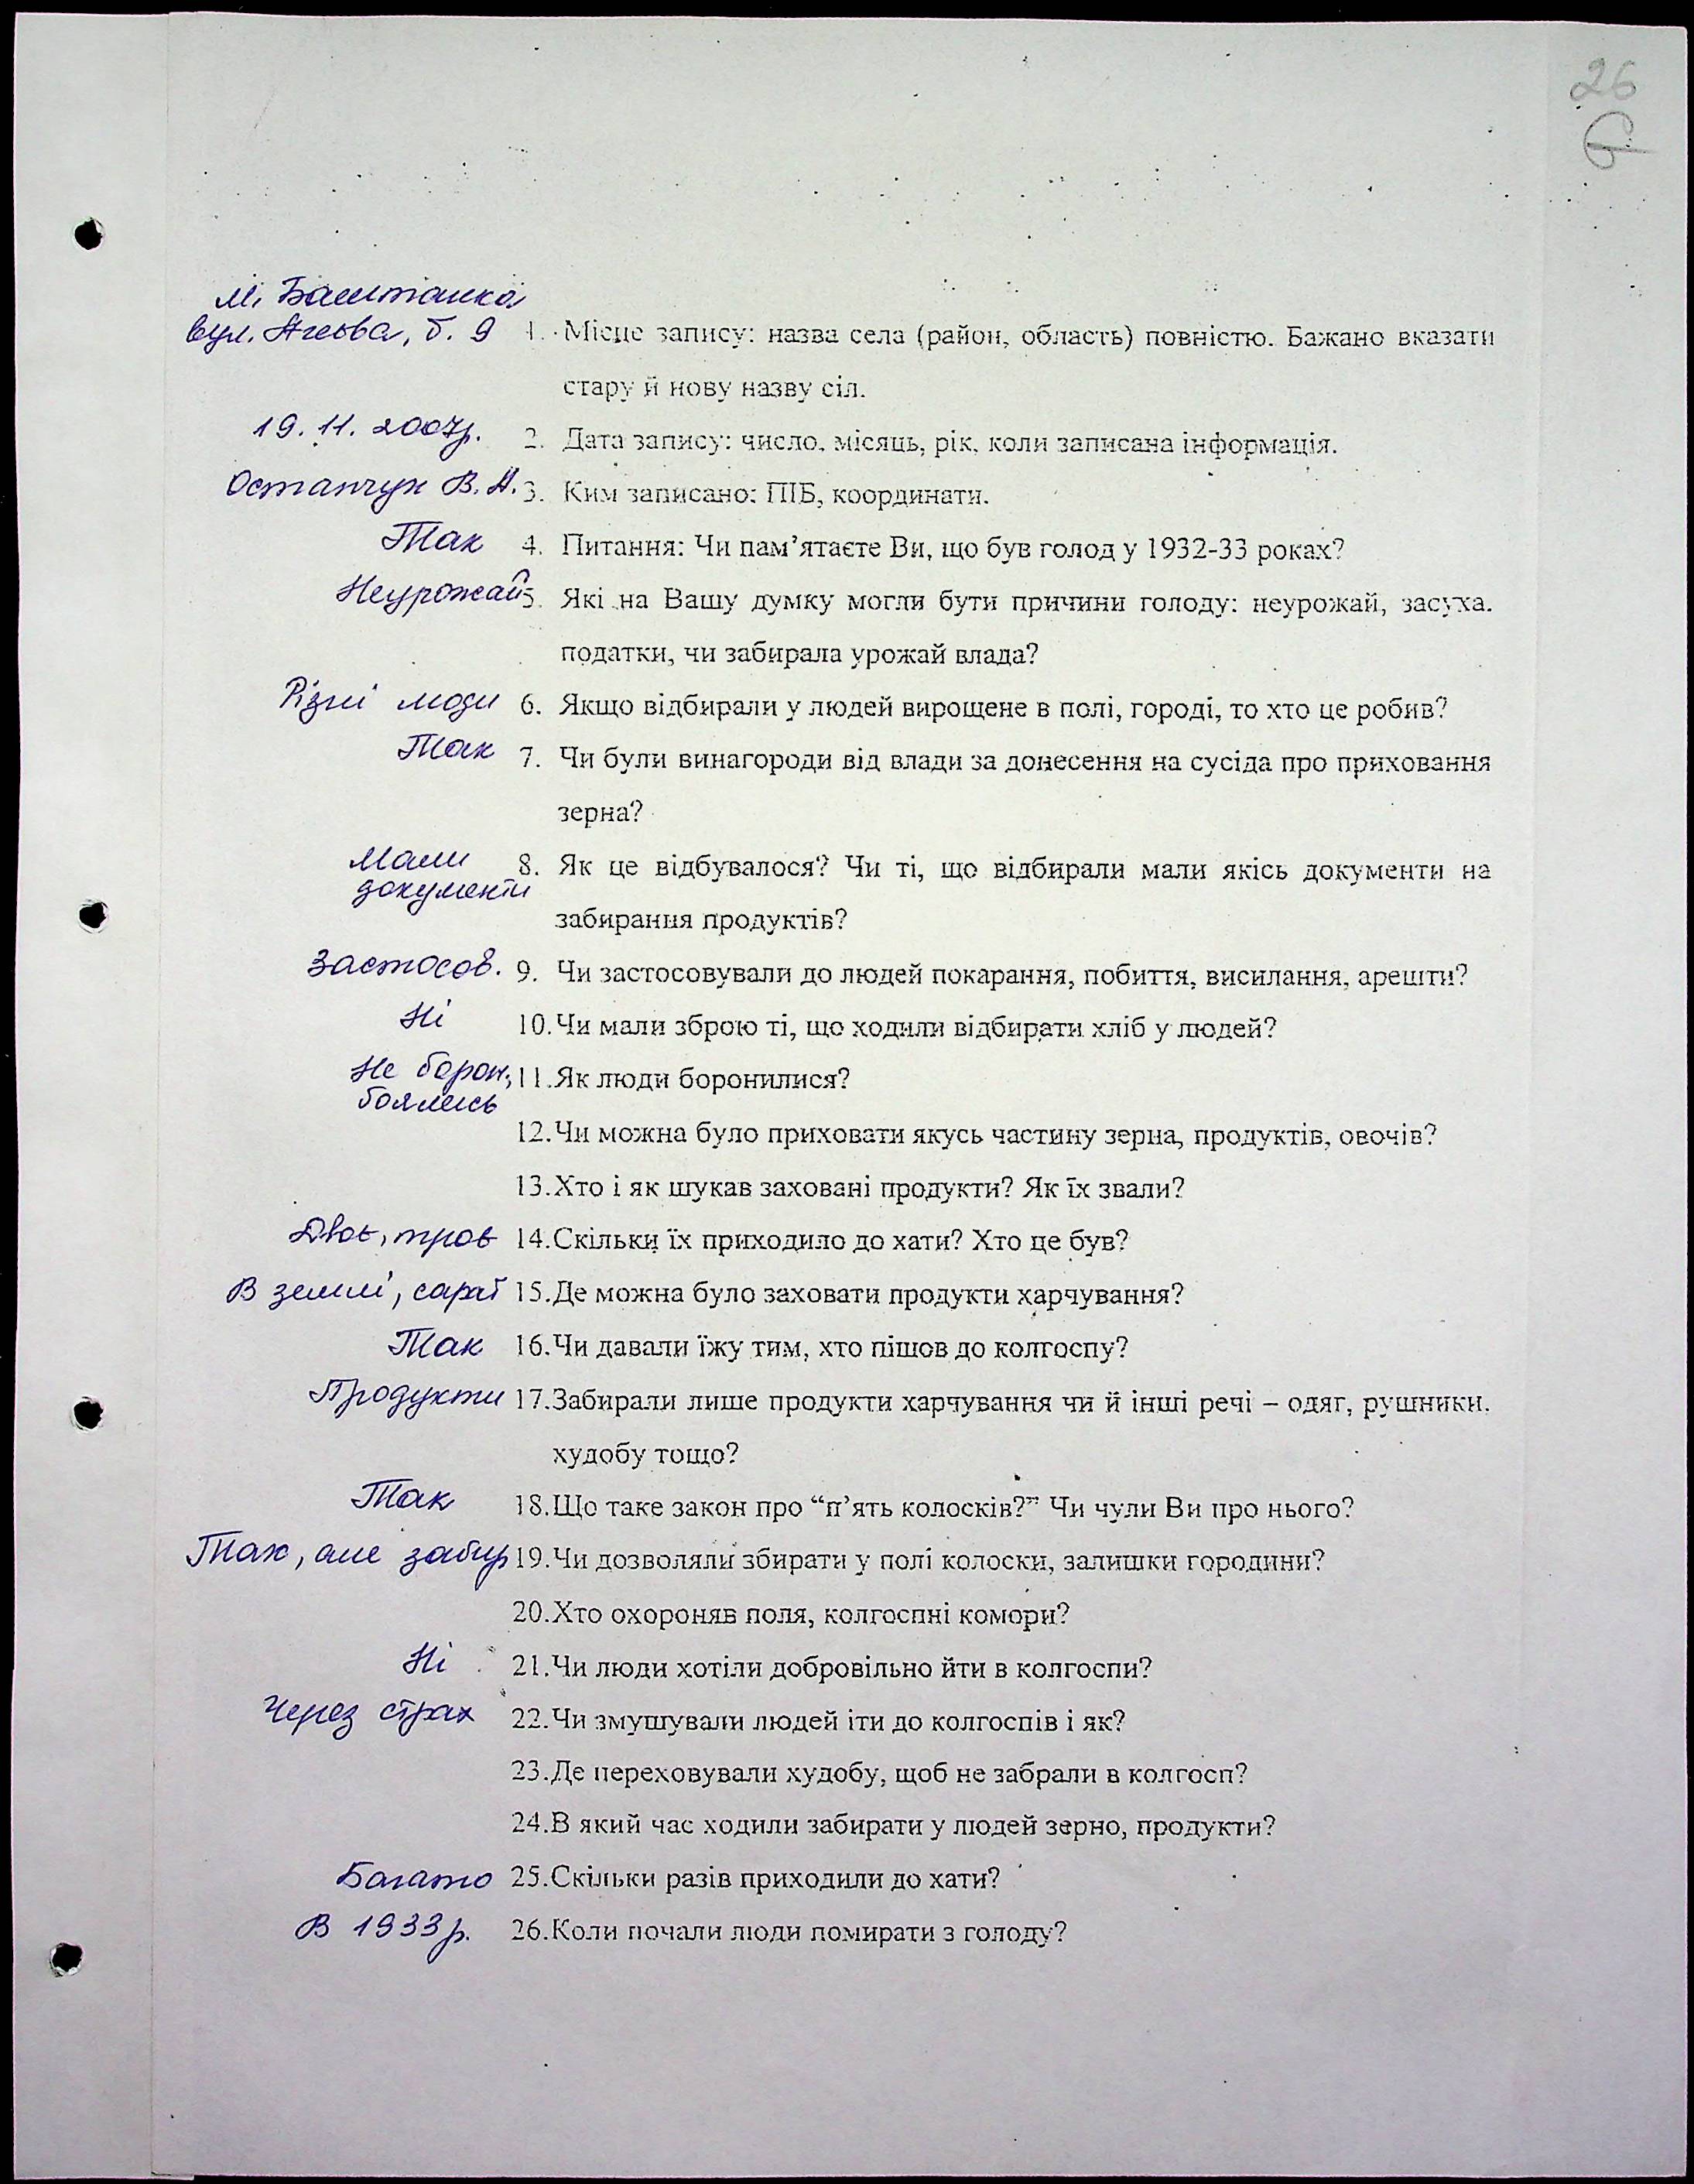 26
м. Баштанка
вул. Агеєва, б. 9 1. Місце запису: назва села (район, область) повністю. Бажано вказати
стару й нову назву сіл.
19.11.2007р. 2. Дата запису: число, місяць, рік, коли записана інформація.
Остапчук В.А. 3. Ким записано: ПІБ, координати.
Так 4. Питання: Чи пам’ятаєте Ви, що був голод у 1932-33 роках?
Неурожай 5. Які на Вашу думку могли бути причини голоду: неурожай, засуха.
податки, чи забирала урожай влада?
Різні люди 6. Якщо відбирали у людей вирощене в полі, городі, то хто це робив?
Так 7. Чи були винагороди від влади за донесення на сусіда про приховання
зерна?
Мали 8. Як це відбувалося? Чи ті, що відбирали мали якісь документи на
документи
забирання продуктів?
Застосов. 9. Чи застосовували до людей покарання, побиття, висилання, арешти?
Ні 10. Чи мали зброю ті, що ходили відбирати хліб у людей?
Не борон, 11. Як люди боронилися?
боялись
12. Чи можна було приховати якусь частину зерна, продуктів, овочів?
13. Хто і як шукав заховані продукти? Як їх звали?
Двоє, троє 14. Скільки їх приходило до хати? Хто це був?
В землі, сараї 15. Де можна було заховати продукти харчування?
Так 16. Чи давали їжу тим, хто пішов до колгоспу?
Продукти 17. Забирали лише продукти харчування чи й інші речі – одяг, рушники.
худобу тощо?
Так 18. Що таке закон про “п’ять колосків?” Чи чули Ви про нього?
Так, але забир 19. Чи дозволяли збирати у полі колоски, залишки городини?
20. Хто охороняв поля, колгоспні комори?
Ні 21. Чи люди хотіли добровільно йти в колгоспи?
Через страх 22. Чи змушували людей іти до колгоспів і як?
23. Де переховували худобу, щоб не забрали в колгосп?
24. В який час ходили забирати у людей зерно, продукти?
Багато 25. Скільки разів приходили до хати?
В 1933р. 26. Коли почали люди помирати з голоду?